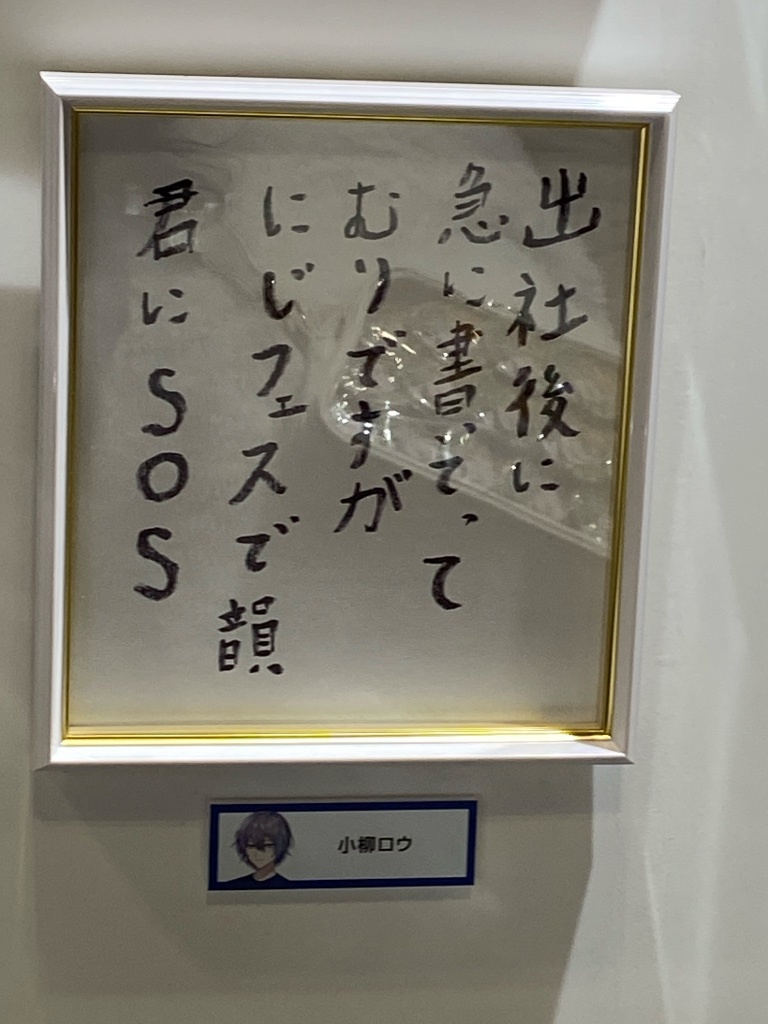 出社後に
急に書いてって
むりですが
にじフェスで韻
君にSOS
小柳ロウ